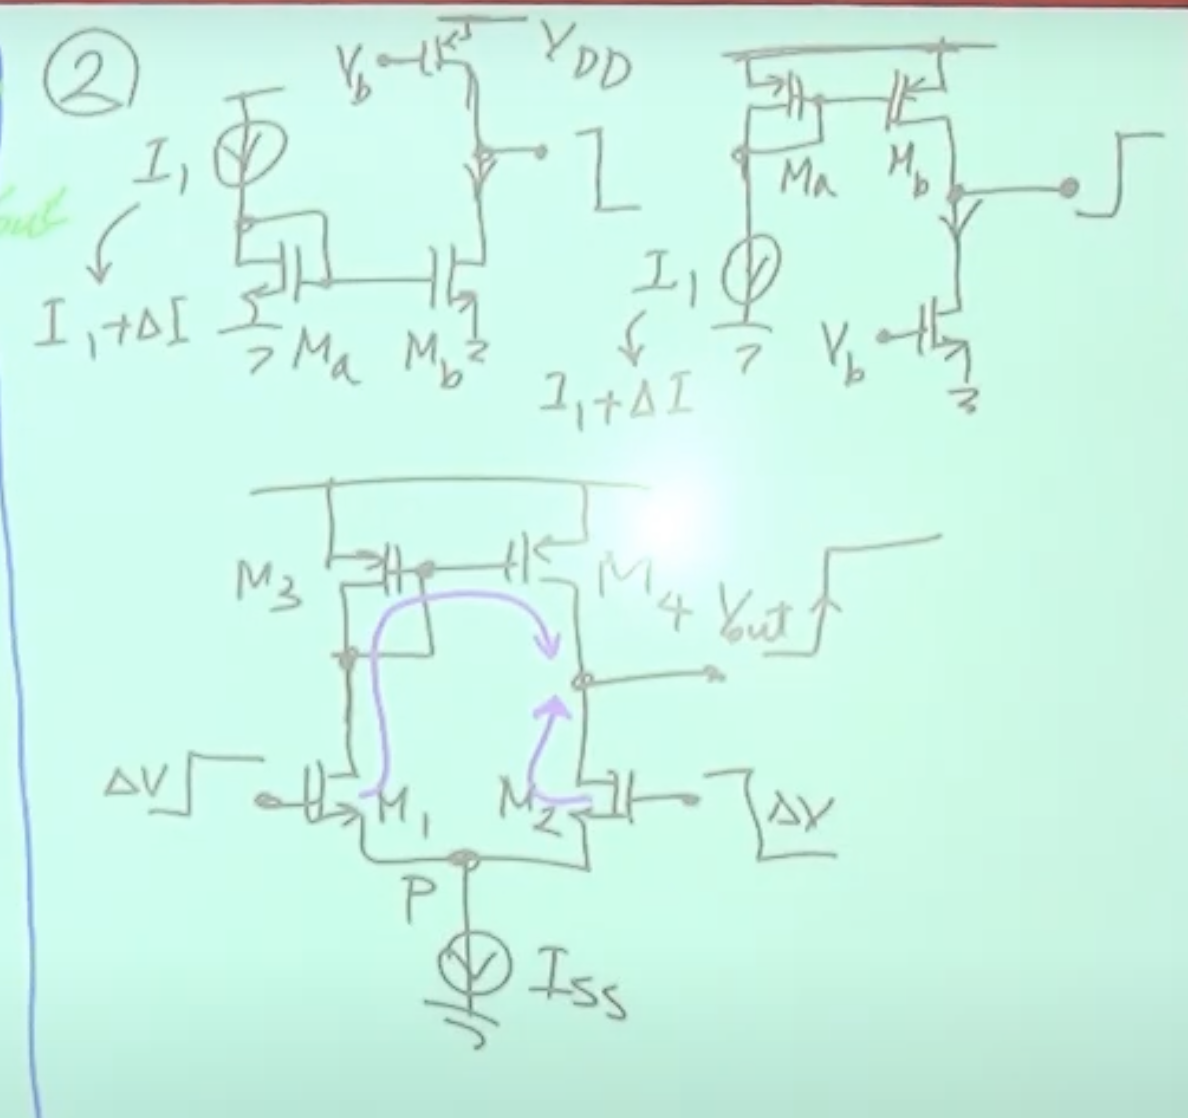 ②
V_b
V_DD
I_1
I_1+ΔI
M_a
M_b
M_a
M_b
I_1
I_1+ΔI
V_b
out
M_3
M_4
V_out
ΔV
M_1
M_2
ΔV
P
I_SS